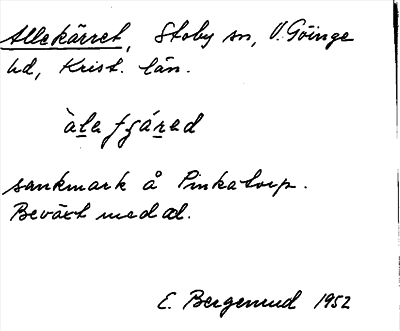 Allekärret, Stoby sn, V. Göinge
hd, Krist. län.
àle fjáred
sankmark å Pinkatorp.
Beväxt med al.
E. Bergemud 1952